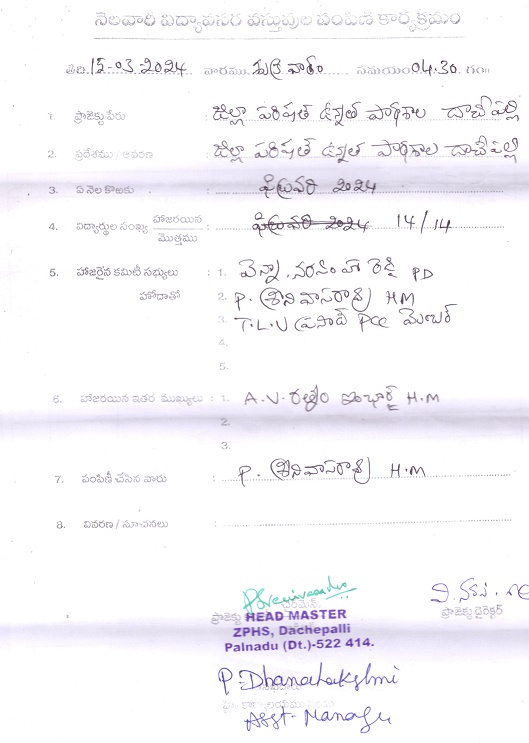 నెలవారి విద్యావసర వస్తువుల పంపిణీ కార్యక్రమం
తేది: 15-03-2024 వారము శుక్రవారం సమయం 04.30 గం॥
1. ప్రాజెక్టు పేరు : జిల్లా పరిషత్ ఉన్నత పాఠశాల దాచేపల్లి
2. ప్రదేశము / ఆవరణ : జిల్లా పరిషత్ ఉన్నత పాఠశాల దాచేపల్లి
3. ఏ నెల కొఱకు : ఫిబ్రువరి 2024
4. విద్యార్థుల సంఖ్య హాజరయిన / మొత్తము : ఫిబ్రువరి 2024 14/14
5. హాజరైన కమిటీ సభ్యులు : 1. వెన్నా. నరసింహా రెడ్డి PD
హోదాతో 2. P. శ్రీనివాసరావు HM
3. T.L.V ప్రసాద్ PCC మెంబర్
4.
5.
6. హాజరయిన ఇతర ముఖ్యులు : 1. A.V. రత్నం ఇంఛార్జ్ H.M
2.
3.
7. పంపిణీ చేసిన వారు : P. శ్రీనివాసరావు H.M
8. వివరణ / సూచనలు :
ప్రాజెక్టు చైర్మెన్
ప్రాజెక్టు డైరెక్టర్
HEAD MASTER
ZPHS, Dachepalli
Palnadu (Dt.)-522 414.
P. Dhanalakshmi
Asst-Manager